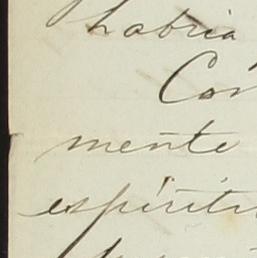 habria
Con
mente
espiritu